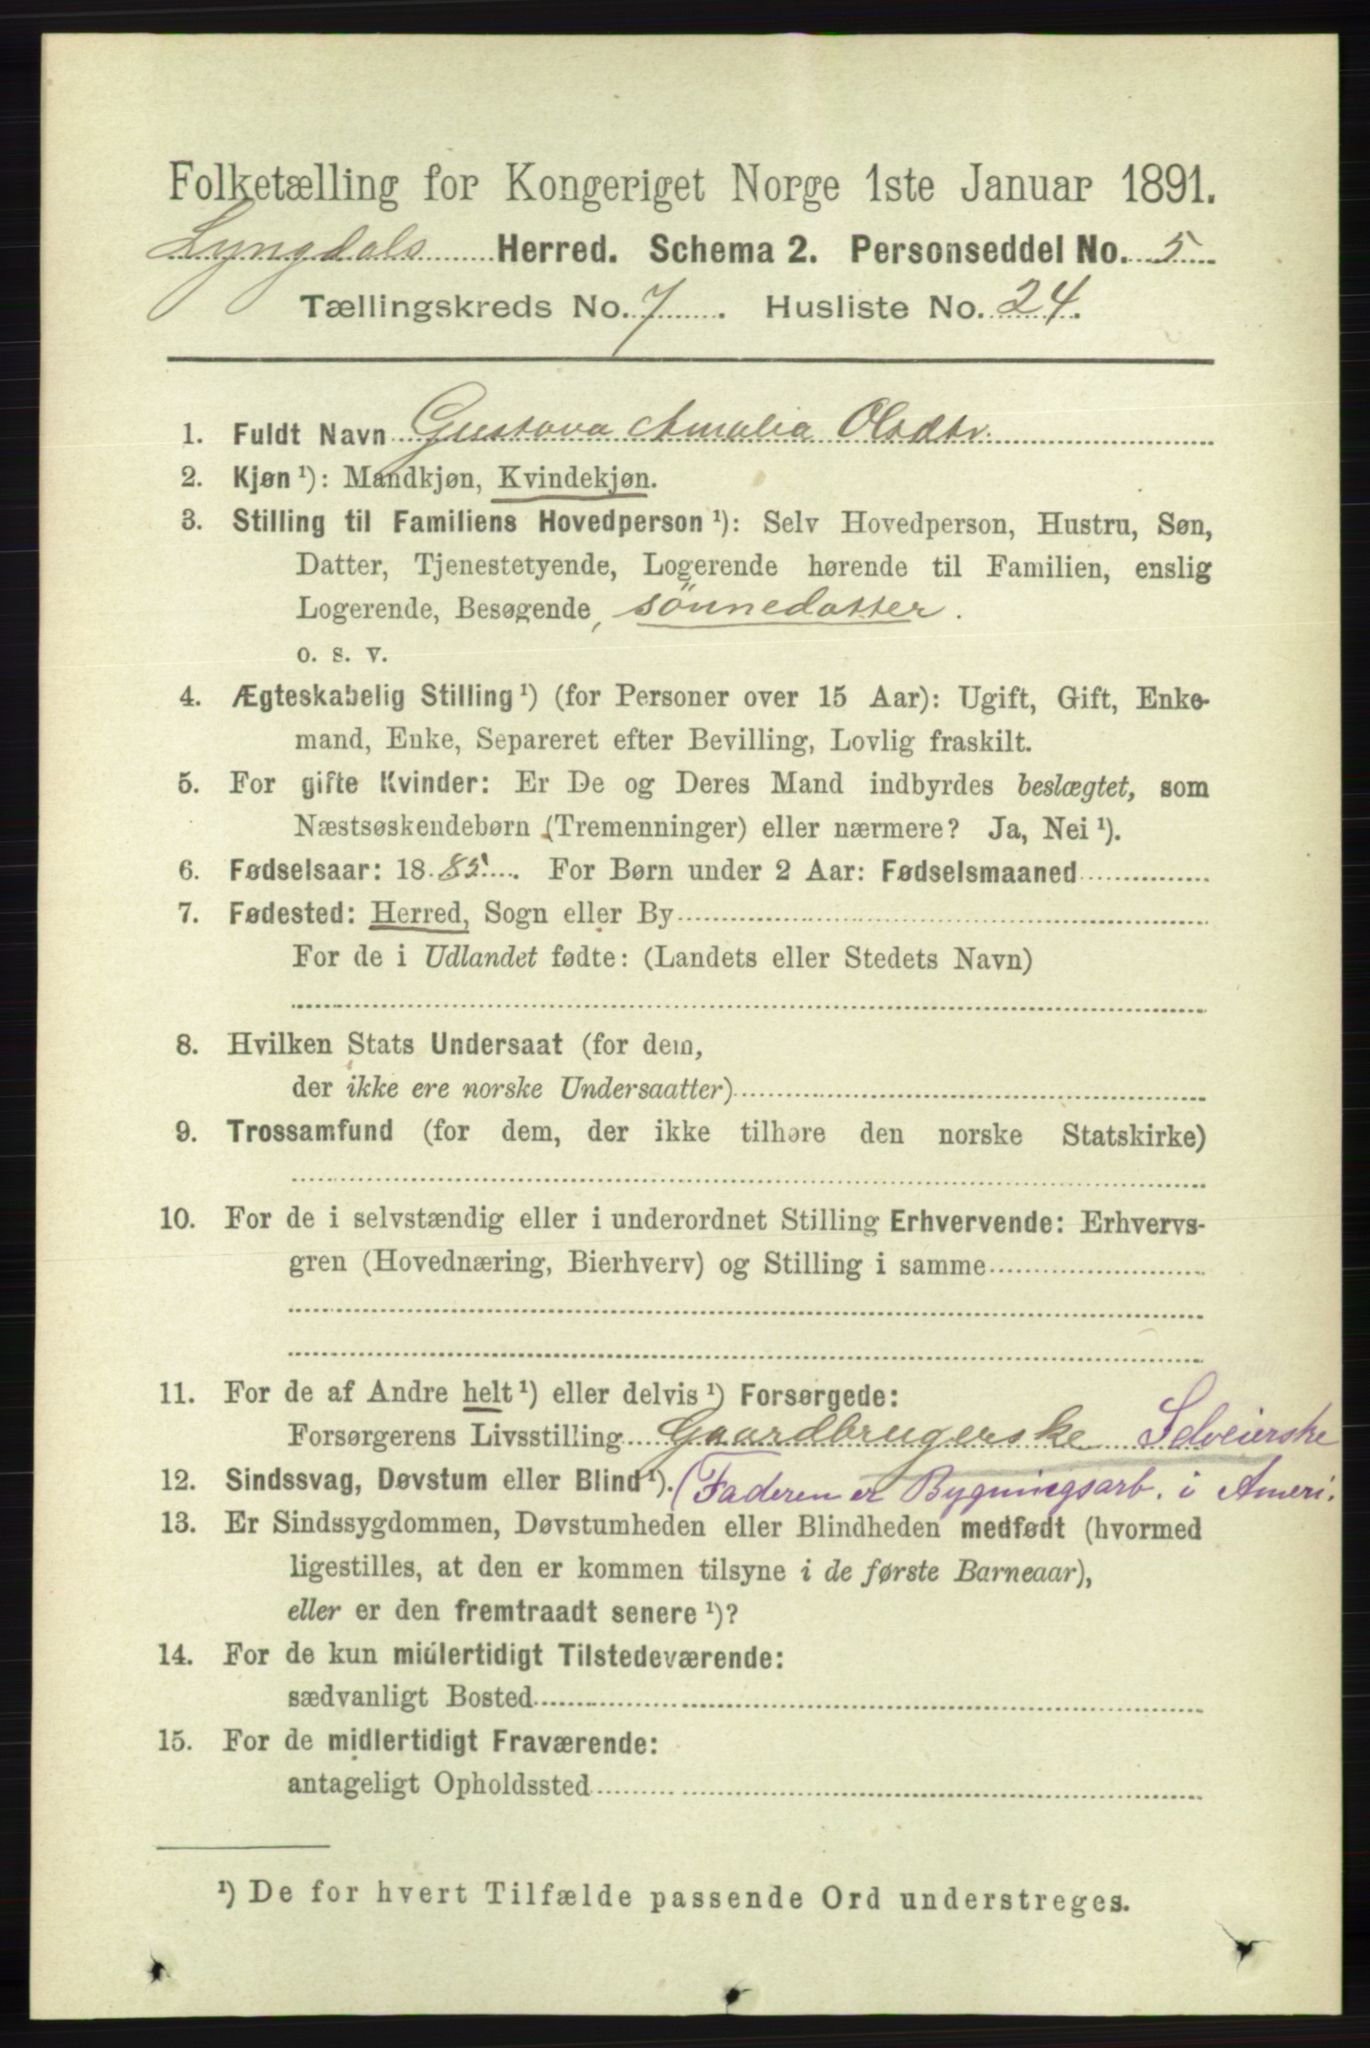 Folketælling for Kongeriget Norge 1ste Januar 1891.
Lyngdals Herred. Schema 2. Personseddel No. 5
Tællingskreds No. 7. Husliste No. 24.
1. Fuldt Navn Gustava Amalia Olsdtr.
2. Kjøn ¹): Mandkjøn, Kvindekjøn.
3. Stilling til Familiens Hovedperson ¹): Selv Hovedperson, Hustru, Søn,
Datter, Tjenestetyende, Logerende hørende til Familien, enslig
Logerende, Besøgende, sönnedatter.
o. s. v.
4. Ægteskabelig Stilling ¹) (for Personer over 15 Aar): Ugift, Gift, Enke-
mand, Enke, Separeret efter Bevilling, Lovlig fraskilt.
5. For gifte Kvinder: Er De og Deres Mand indbyrdes beslægtet, som
Næstsøskendebørn (Tremenninger) eller nærmere? Ja, Nei ¹).
6. Fødselsaar: 1885. For Børn under 2 Aar: Fødselsmaaned
7. Fødested: Herred, Sogn eller By
For de i Udlandet fødte: (Landets eller Stedets Navn)
8. Hvilken Stats Undersaat (for dem,
der ikke ere norske Undersaatter)
9. Trossamfund (for dem, der ikke tilhøre den norske Statskirke)
10. For de i selvstændig eller i underordnet Stilling Erhvervende: Erhvervs-
gren (Hovednæring, Bierhverv) og Stilling i samme
11. For de af Andre helt ¹) eller delvis ¹) Forsørgede:
Forsørgerens Livsstilling Gaardbrugerske Selveierske
12. Sindssvag, Døvstum eller Blind ¹). (Faderen er Bygningsarb. i Ameri.
13. Er Sindssygdommen, Døvstumheden eller Blindheden medfødt (hvormed
ligestilles, at den er kommen tilsyne i de første Barneaar),
eller er den fremtraadt senere ¹)?
14. For de kun midlertidigt Tilstedeværende:
sædvanligt Bosted
15. For de midlertidigt Fraværende:
antageligt Opholdssted
¹) De for hvert Tilfælde passende Ord understreges.